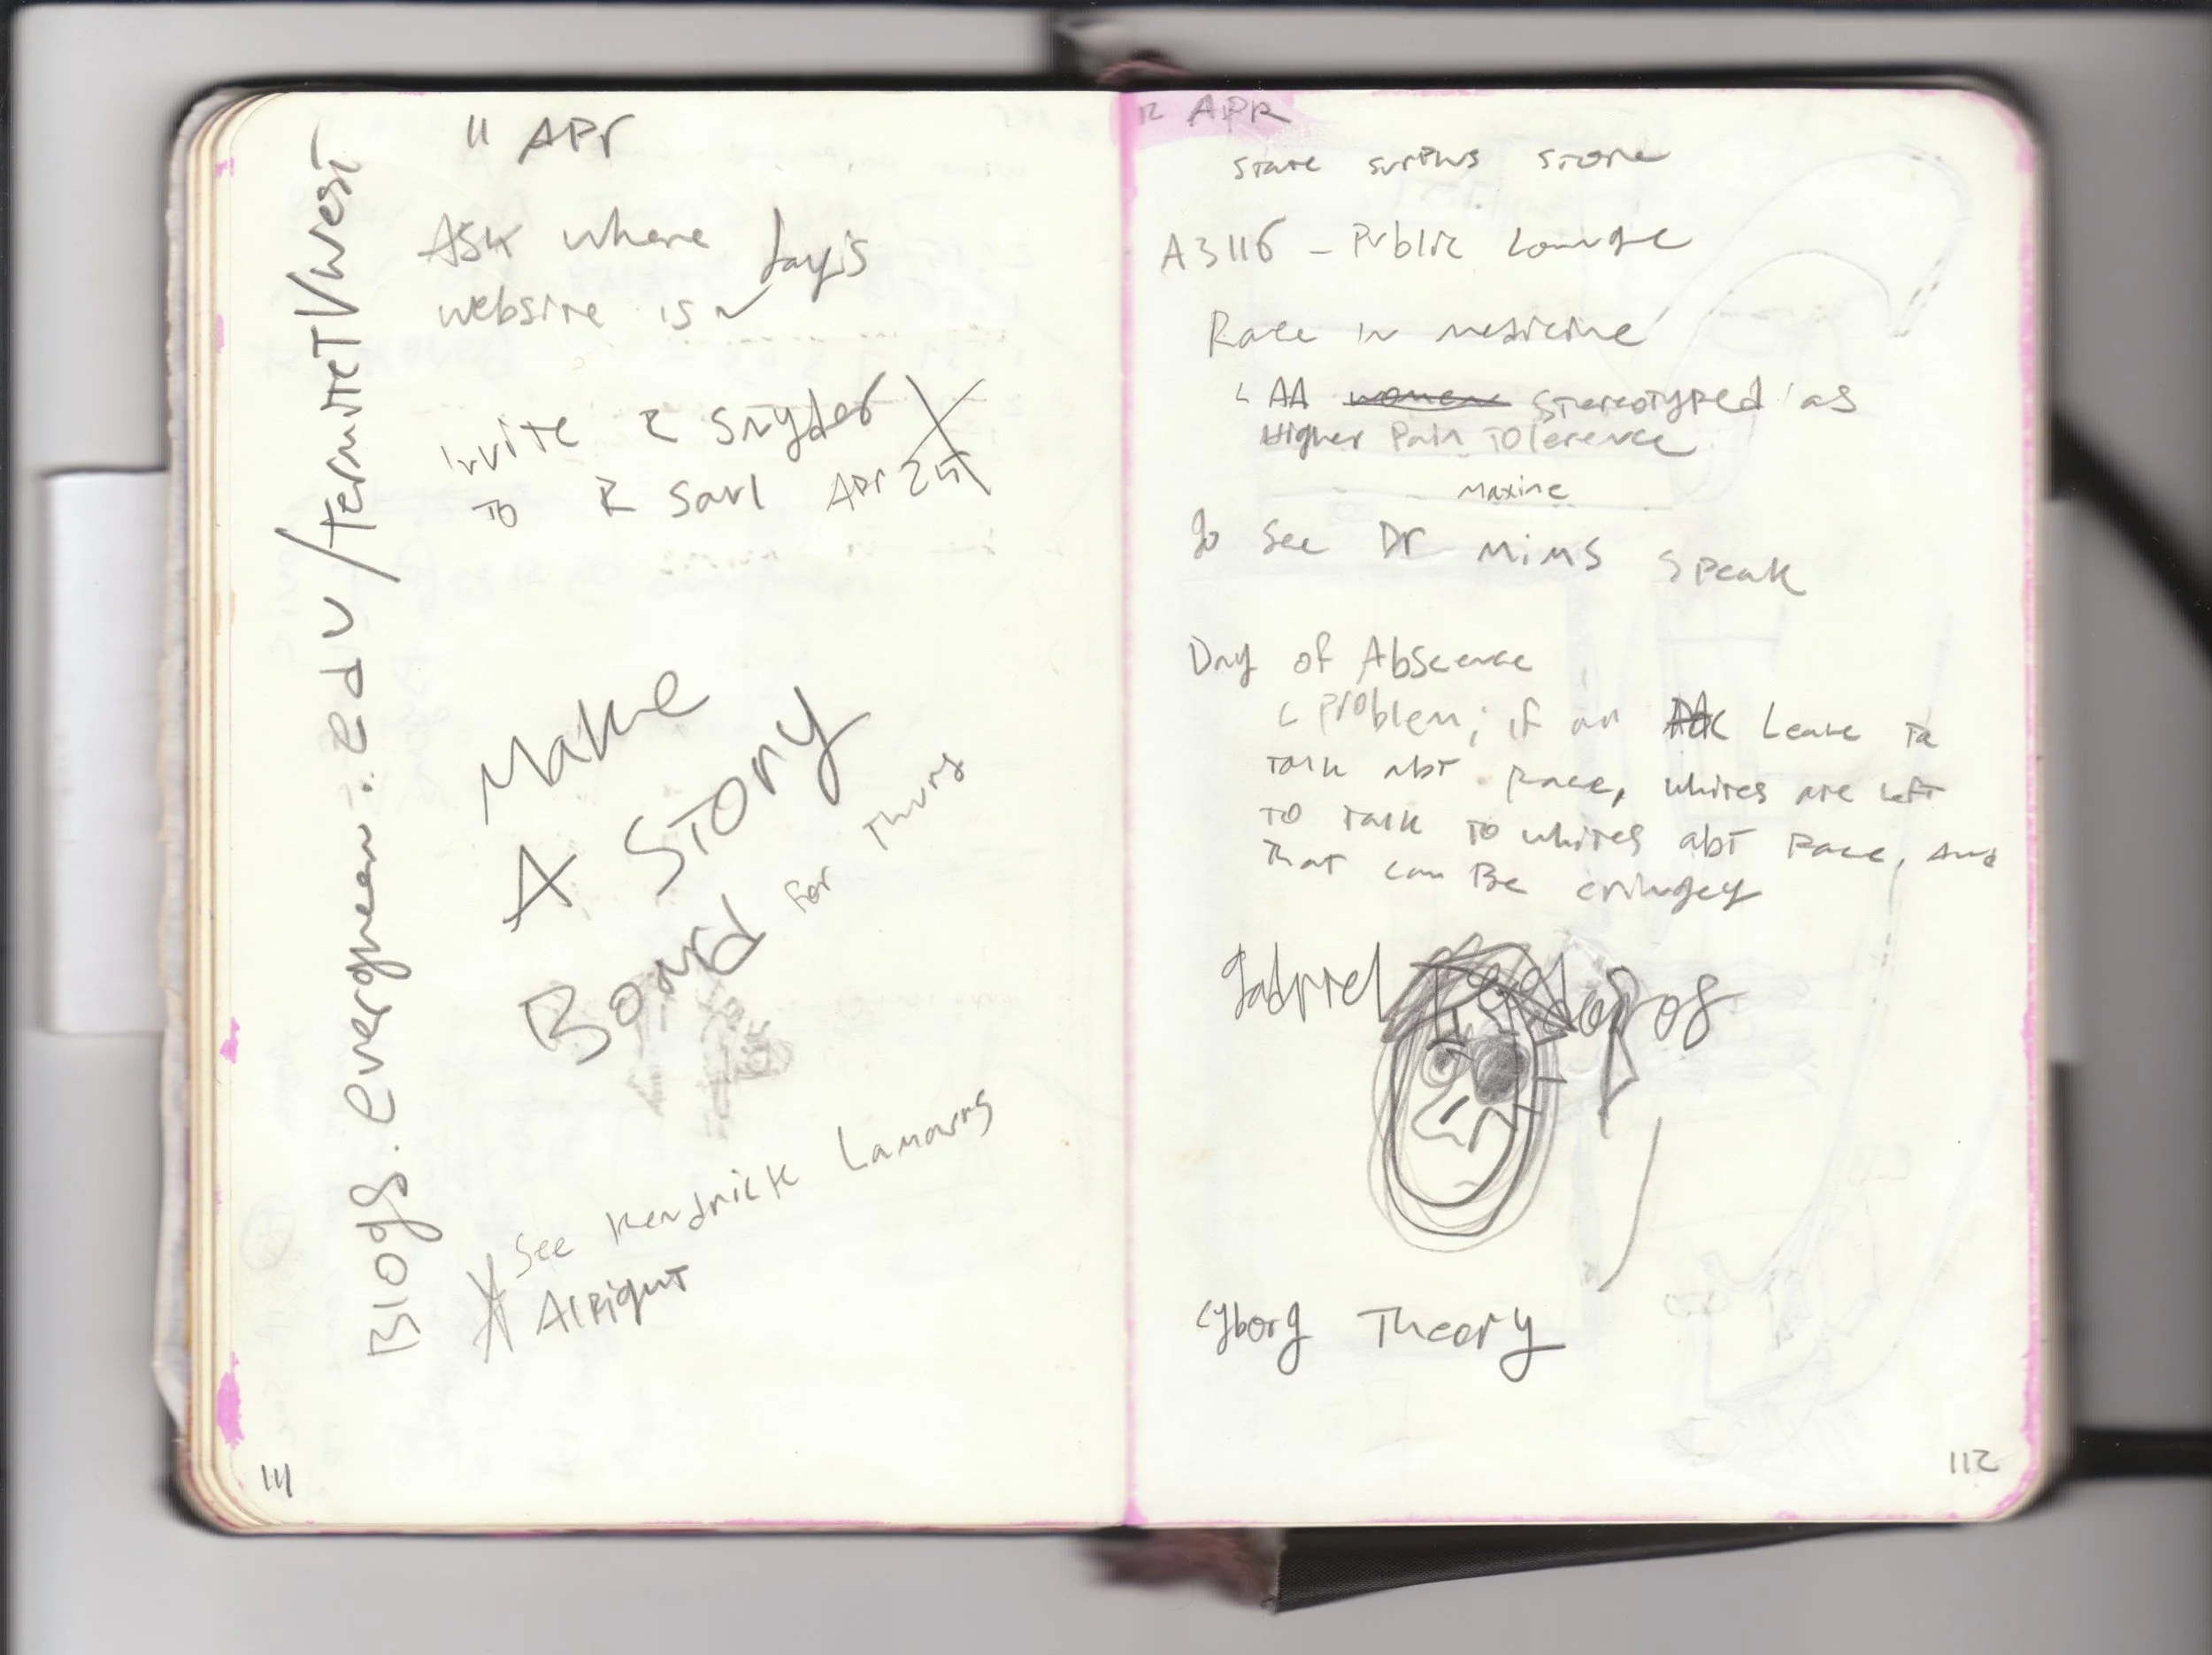 11 APr
Ask where Jay's
website is
invite R Snyder
to R Saul Apr 25
Make
A Story
Board for Thurs
See Kendrick Lamours
Alright
Blogs.evergreen.edu/termiteTVwest
111
12 APR
State surplus store
A3116 - Public Lounge
Race in medicine
AA women stereotyped as
Higher Pain Tolerence
Maxine
Go see Dr Mims speak
Day of Abscence
Problem; if all leave to
talk abt race, whites are left
to talk to whites abt race, and
that can be cringey
Gabriel
Cyborg Theory
112